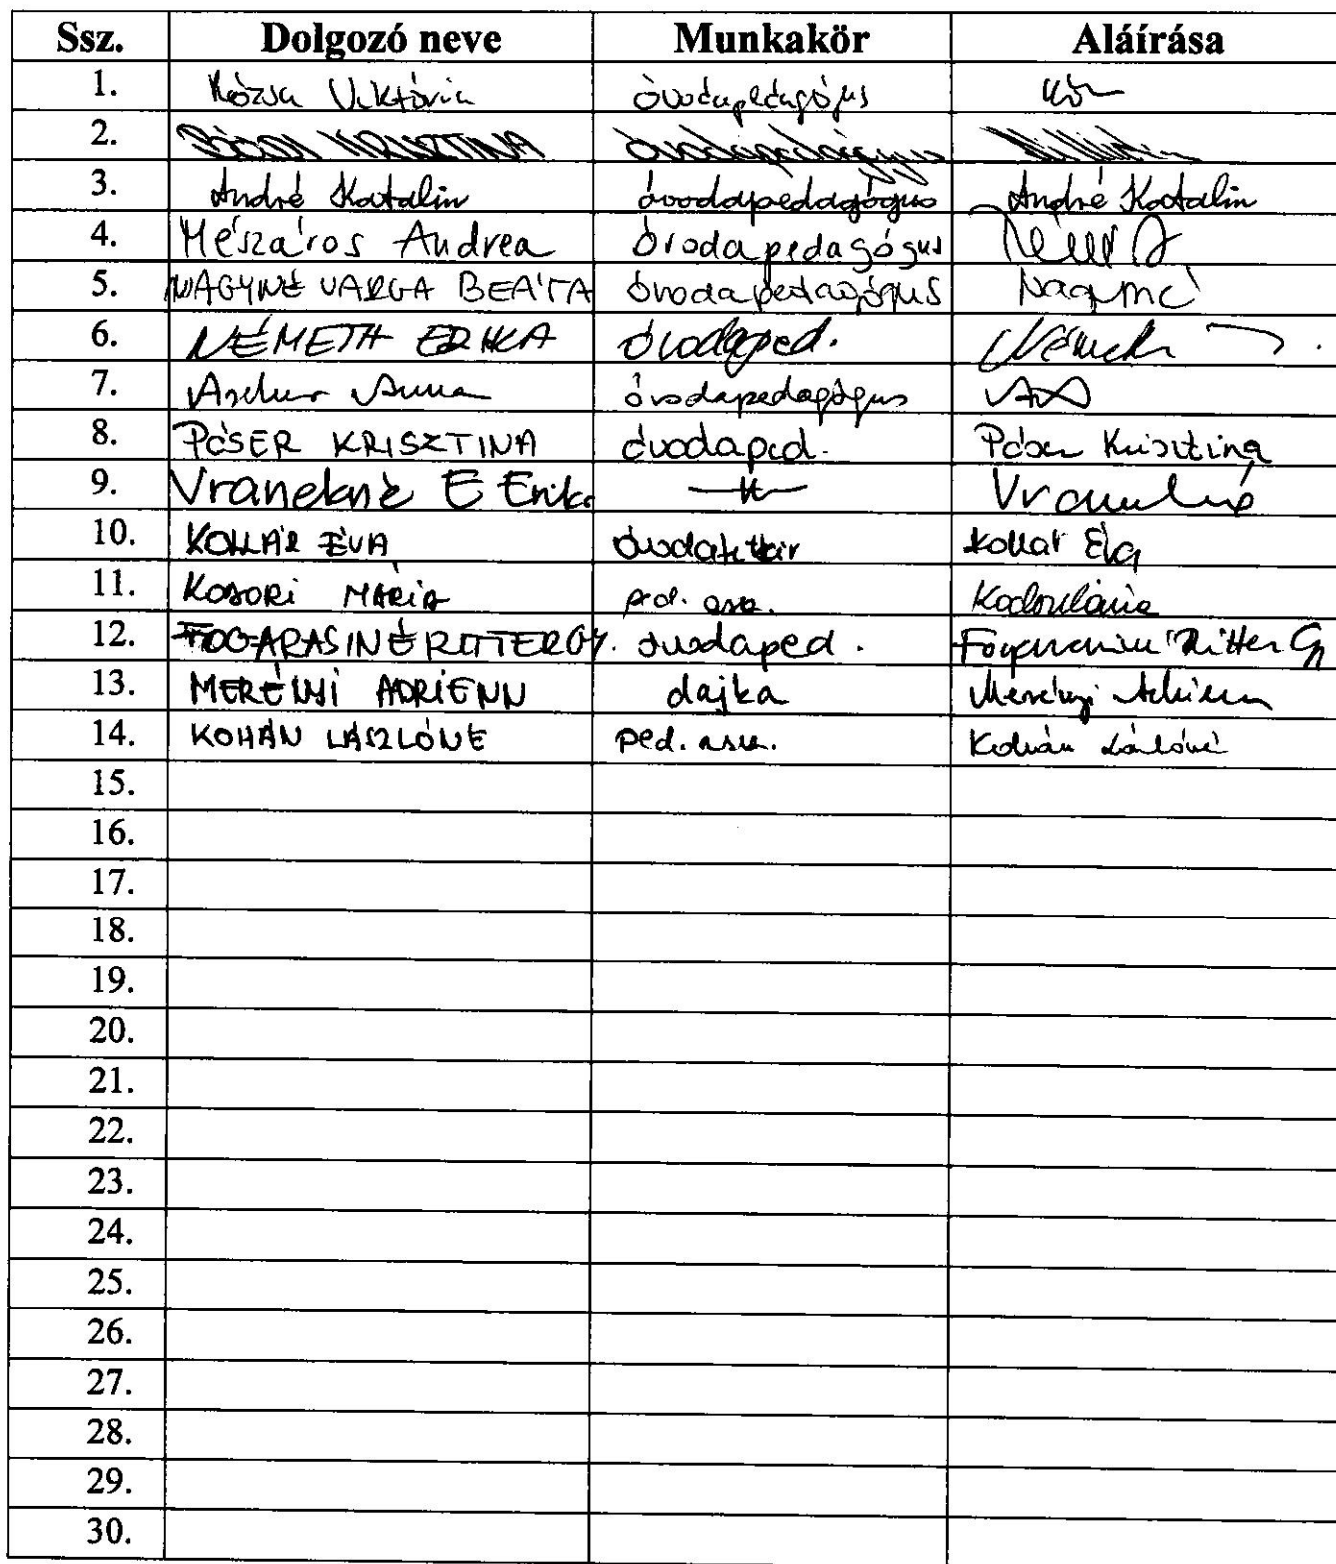 Ssz. Dolgozó neve Munkakör Aláírása
1. Rózsa Viktória óvodapedagógus
2. KRISZTINA óvodapedagógus
3. André Katalin óvodapedagógus André Katalin
4. Mészáros Andrea óvodapedagógus
5. NAGYNÉ VARGA BEÁTA óvodapedagógus Nagyné
6. NÉMETH ERIKA óvodaped. Németh
7. Anna óvodapedagógus
8. PÓSER KRISZTINA óvodaped. Póser Krisztina
9. Vranekné E Erika —||— Vranekné
10. KOLLÁR ÉVA óvodatitkár Kollár Éva
11. MÁRIA ped. assz.
12. FOGARASINÉ RITTER GY. óvodaped. Fogarasiné Ritter Gy
13. MERÉNYI ADRIENN dajka Merényi Adrienn
14. KOHÁN LÁSZLÓNÉ ped. assz. Kohán Lászlóné
15.
16.
17.
18.
19.
20.
21.
22.
23.
24.
25.
26.
27.
28.
29.
30.